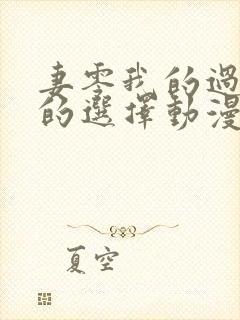 妻零我的過
的選擇動漫
夏空